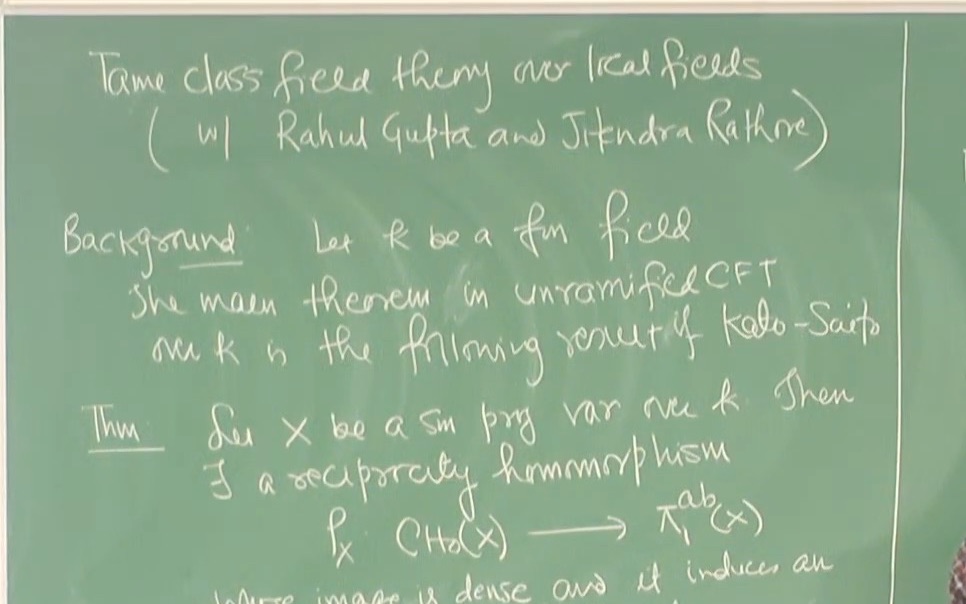 Tame class field theory over local fields
( w/ Rahul Gupta and Jitendra Rathore)
Background Let k be a fin field
The main theorem in unramified CFT
over k is the following result of Kato-Saito
Thm Let X be a sm proj var over k. Then
∃ a reciprocity homomorphism
ρ_X CH₀(X) ⟶ π₁^ab(X)
whose image is dense and it induces an